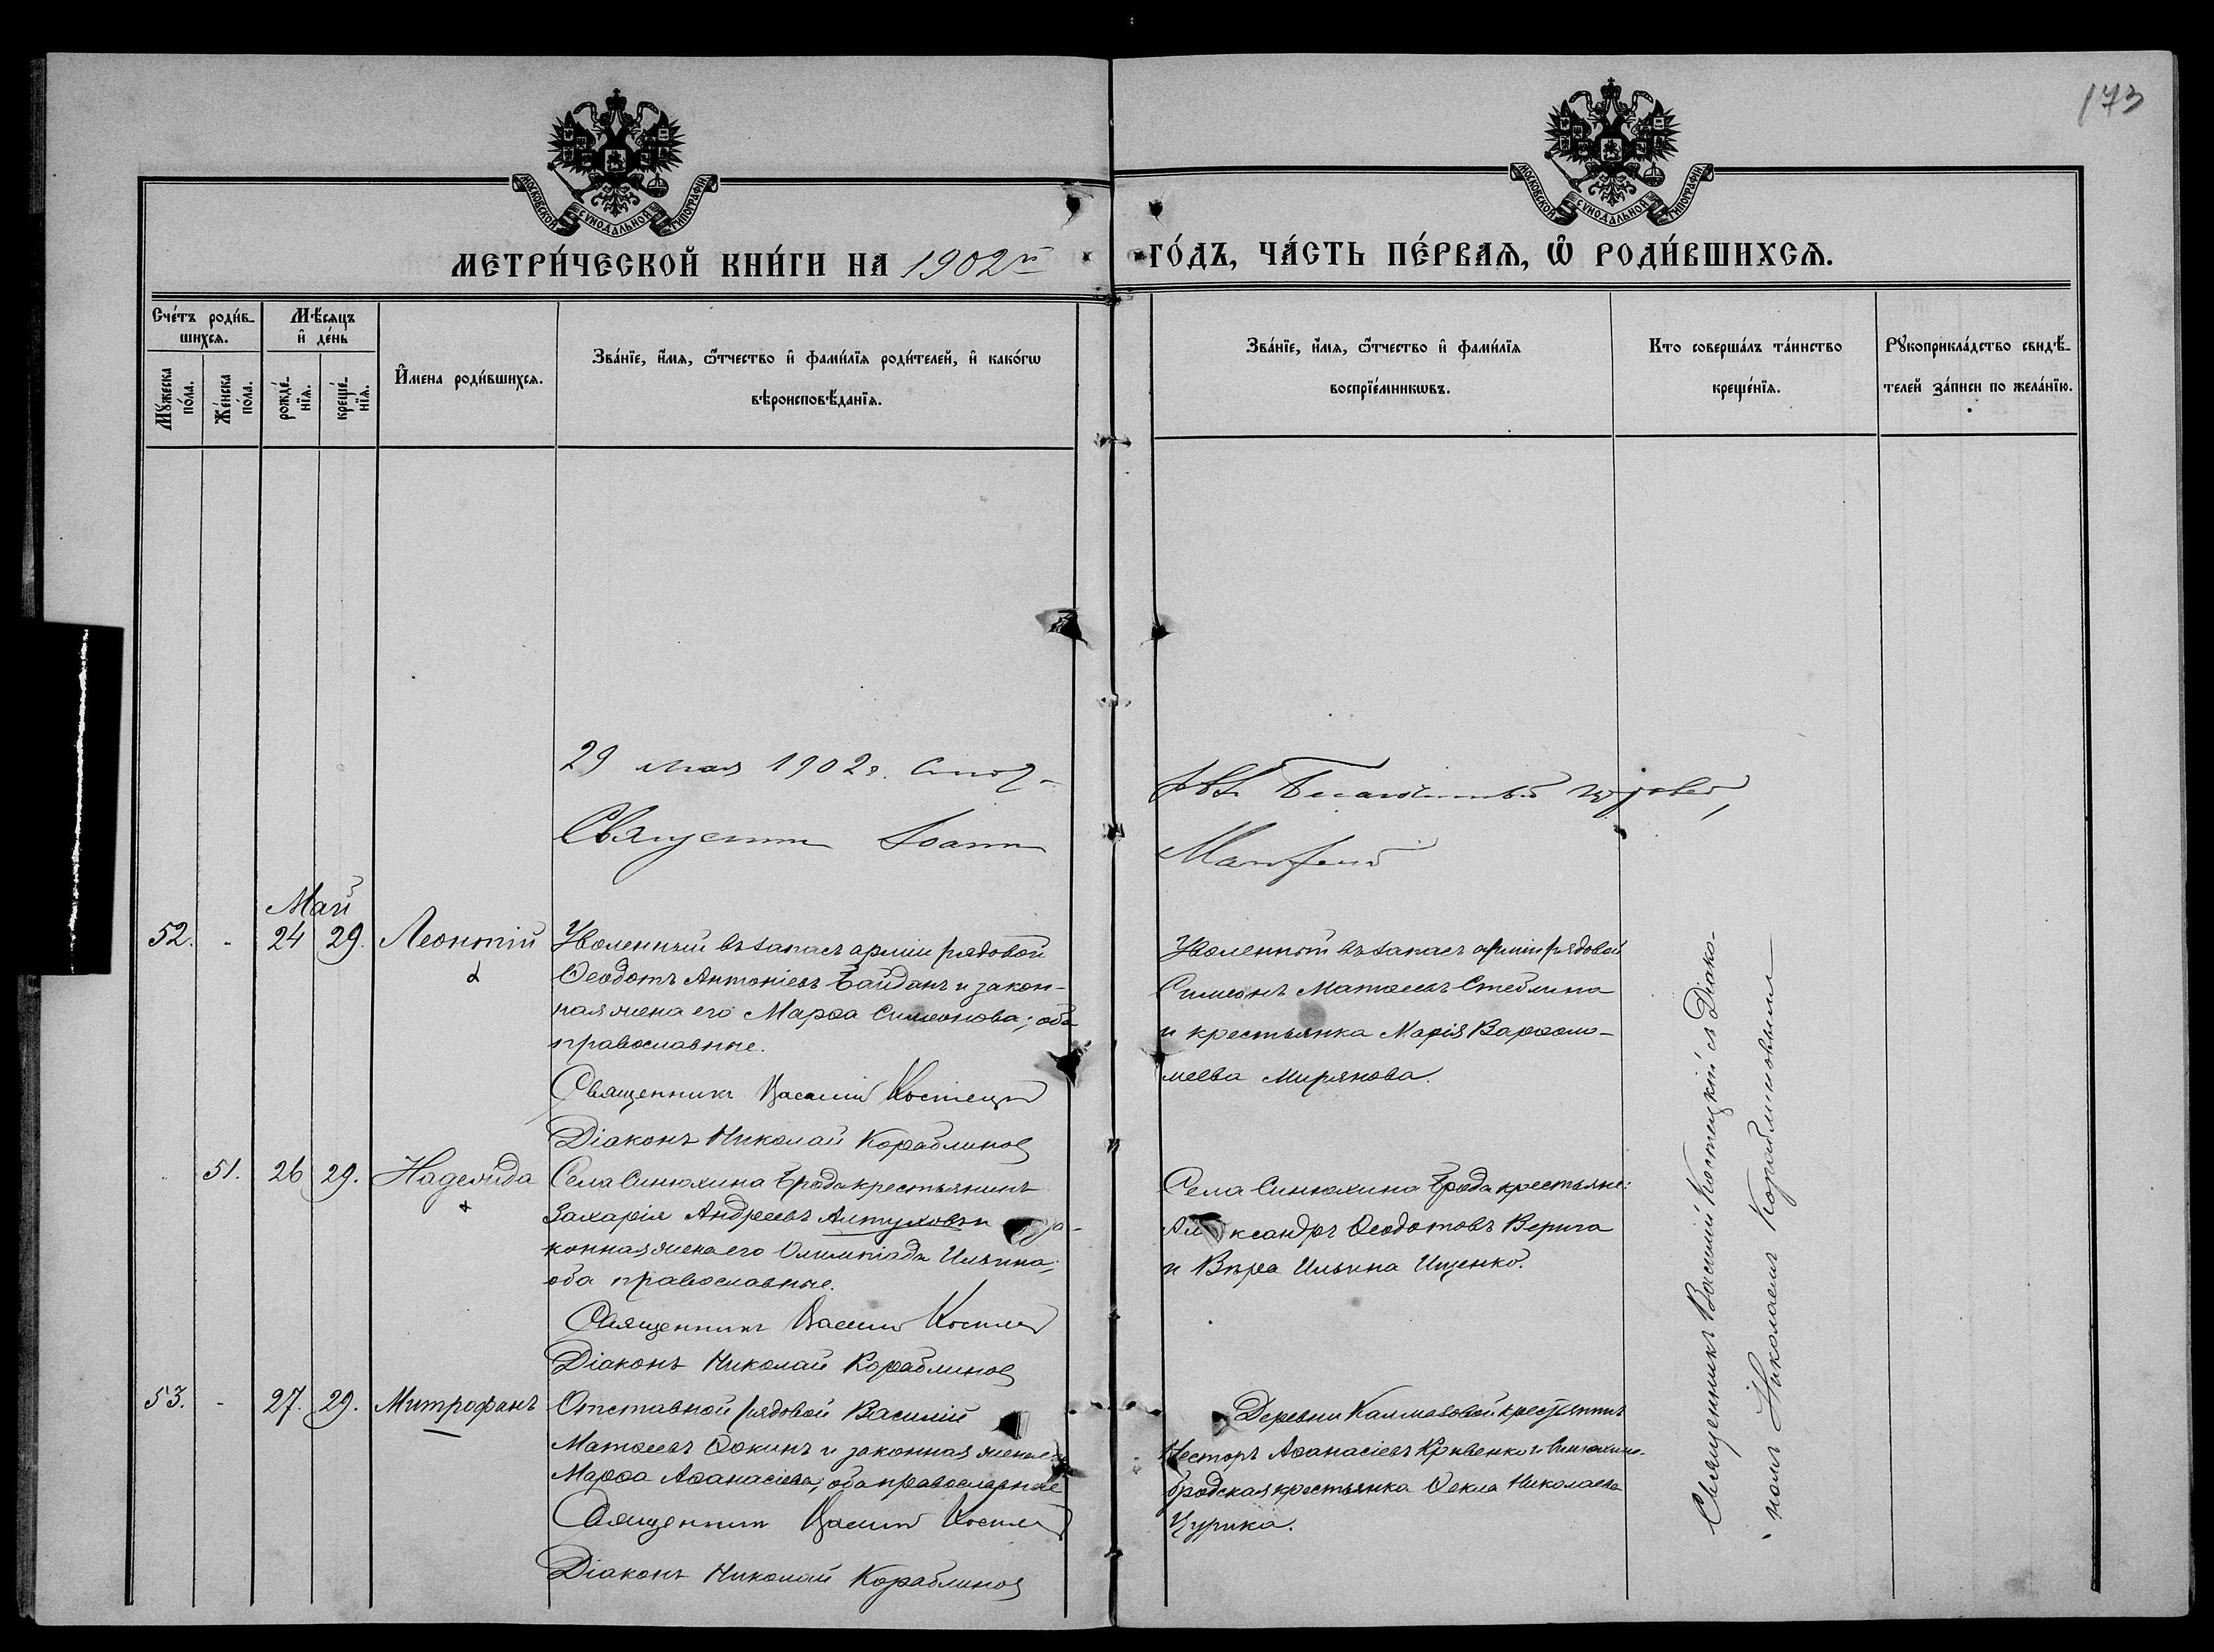 173
МОСКОВСКОЙ СѴНОДАЛЬНОЙ ТИПОГРАФІИ
МОСКОВСКОЙ СѴНОДАЛЬНОЙ ТИПОГРАФІИ
МЕТРИ́ЧЕСКОЙ КНИ́ГИ НА 1902й ГО́ДЪ, ЧА́СТЬ ПЕ́РВАѦ, Ѡ҆ РОДИ́ВШИХСѦ.
Сче́тъ роди́в-
шихсѧ.
Мꙋ́жеска
по́ла.
Же́нска
по́ла.
Мѣ́сѧцъ
и҆ де́нь
рожде́-
нїѧ.
креще́-
нїѧ.
И҆мена роди́вшихсѧ.
Зва́нїе, и҆́мѧ, ѻ҆́тчество и҆ фами́лїѧ роди́телей, и҆ како́гѡ
вѣроисповѣ́данїѧ.
Зва́нїе, и҆́мѧ, ѻ҆́тчество и҆ фами́лїѧ
воспрїе́мникѡвъ.
Кто соверша́лъ та́инство
креще́нїѧ.
Рꙋкоприкла́дство свидѣ́-
телей за́писи по жела́нїю.
29 мая 1902 г.
Іоанн
Май
52. - 24 29. Леонтій
Уволенный въ запасъ арміи рядовой
Ѳеодотъ Антоніевъ Байданъ и закон-
ная жена его Марѳа Симеонова; оба
православные.
Священникъ Василій Костецкій
Діаконъ Николай Кораблиновъ
Уволенный въ запасъ арміи рядовой
Симеонъ Матѳеевъ Стеблина
и крестьянка Марія Варѳоло-
меева Мирянова.
51. 26 29. Надежда
Села Синюхина Брода крестьянинъ
Захарія Андреевъ Алтуховъ и за-
конная жена его Олимпіада Ильина;
оба православные.
Священникъ Василій Костецкій
Діаконъ Николай Кораблиновъ
Села Синюхина Брода крестьяне:
Александръ Ѳеодотовъ Верига
и Вѣра Ильина Ищенко.
53. - 27. 29. Митрофанъ
Отставной рядовой Василій
Матѳеевъ Ѳокинъ и законная жена его
Марѳа Аѳанасіева; оба православные
Священникъ Василій Костецкій
Діаконъ Николай Кораблиновъ
Деревни Калмазовой крестьянинъ
Несторъ Аѳанасіевъ Кривенко и Синюхино-
бродская крестьянка Ѳекла Николаева
Цурика.
Священникъ Василій Костецкій съ Діако-
номъ Николаемъ Кораблиновымъ